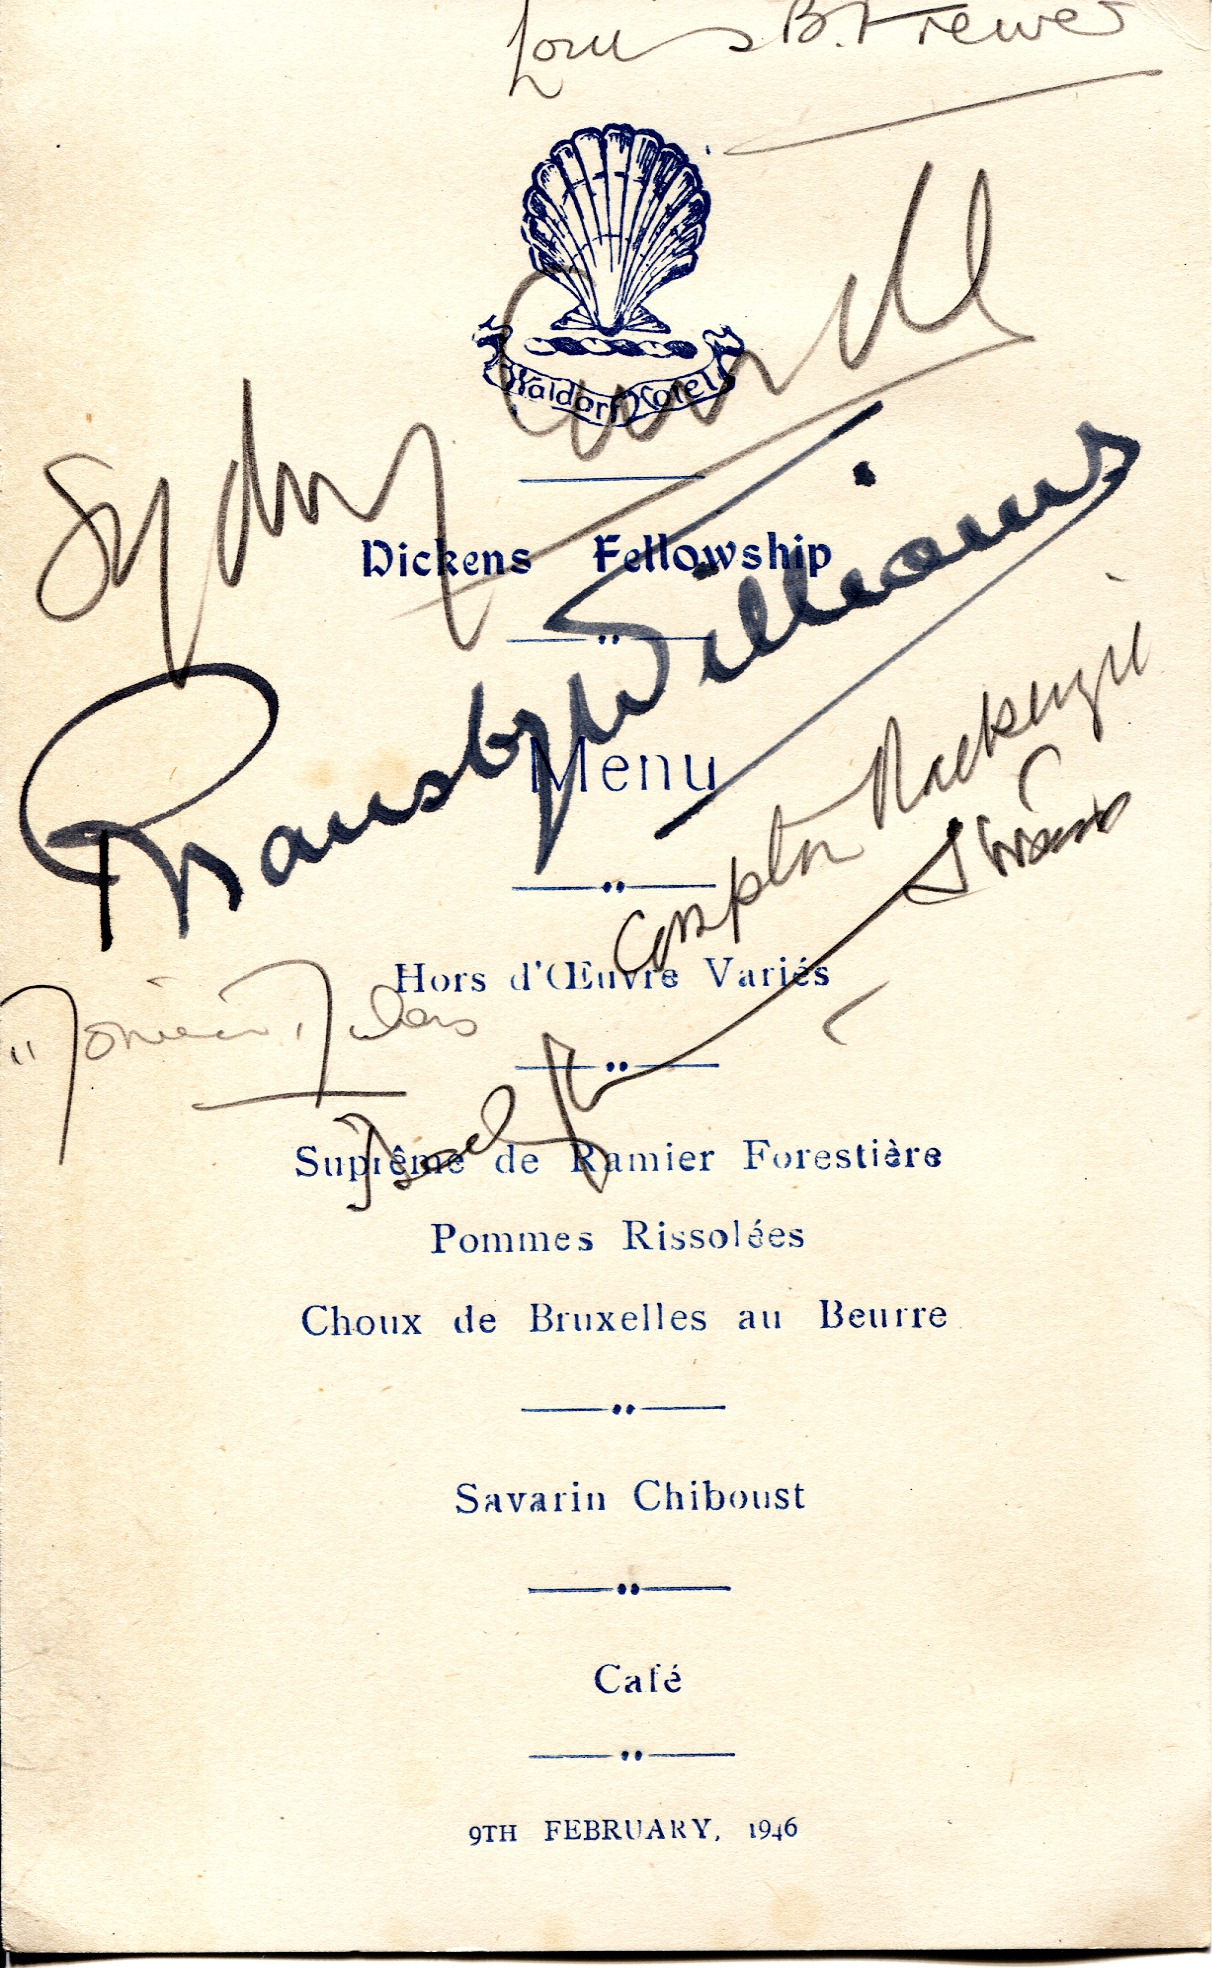 Louis B. Frewer
Waldorf Hotel
Sydney
Dickens Fellowship
Bransby Williams
Menu
Compton Mackenzie
Hors d'Œuvre Variés
Suprême de Ramier Forestière
Pommes Rissolées
Choux de Bruxelles au Beurre
Savarin Chiboust
Café
9TH FEBRUARY, 1946